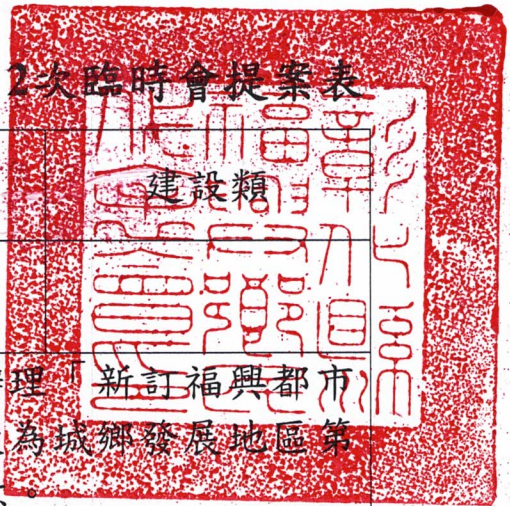 2次臨時會提案表
建設類
理「新訂福興都市
為城鄉發展地區第
。
彰化縣
福興鄉
民代表會印